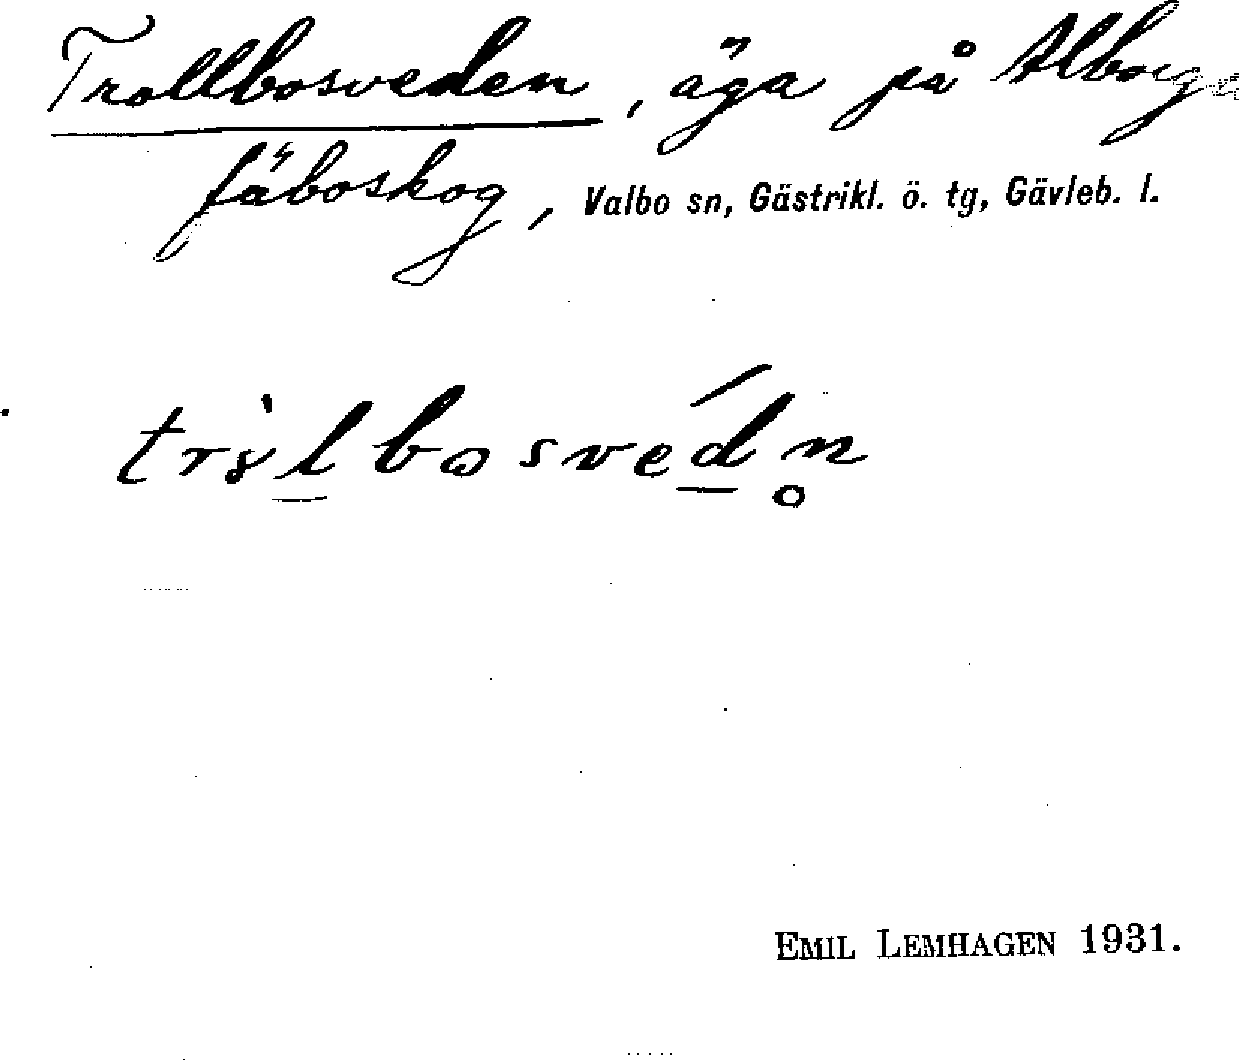 Trollbosveden, äga på Alborga
fäboskog, Valbo sn, Gästrikl. ö. tg, Gävleb. l.
EMIL LEMHAGEN 1931.